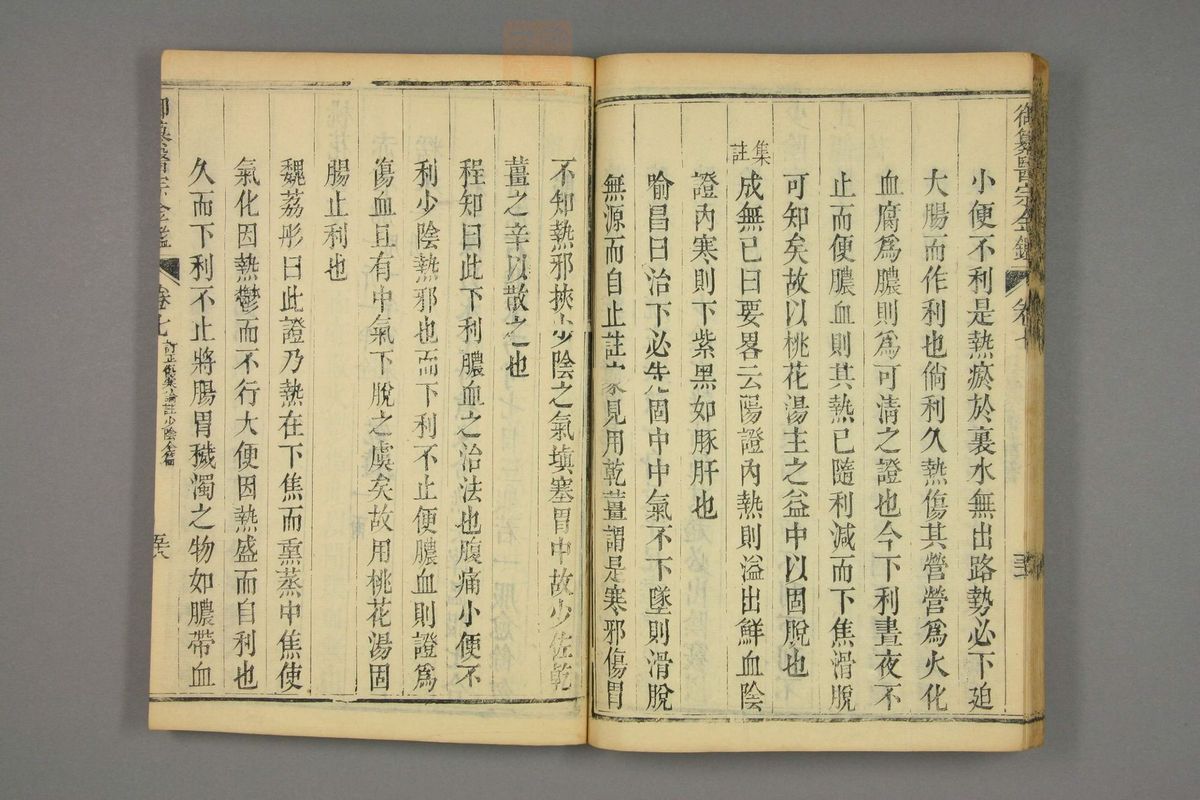 御纂醫宗金鑑 卷七
小便不利是熱瘀於裏水無出路勢必下廹
大腸而作利也倘利久熱傷其營營爲火化
血腐爲膿則爲可淸之證也今下利晝夜不
止而便膿血則其熱已隨利減而下焦滑脫
可知矣故以桃花湯主之益中以固脫也
集註
成無已曰要畧云陽證內熱則溢出鮮血陰
證內寒則下紫黑如豚肝也
喻昌曰治下必先固中中氣不下墜則滑脫
無源而自止註家見用乾薑謂是寒邪傷胃
不知熱邪挾少陰之氣塡塞胃中故少佐乾
薑之辛以散之也
程知曰此下利膿血之治法也腹痛小便不
利少陰熱邪也而下利不止便膿血則證爲
傷血且有中氣下脫之虞矣故用桃花湯固
腸止利也
魏荔彤曰此證乃熱在下焦而熏蒸中焦使
氣化因熱鬱而不行大便因熱盛而自利也
久而下利不止將腸胃穢濁之物如膿帶血
御纂醫宗金鑑 卷七 訂正傷寒論註少陰全篇